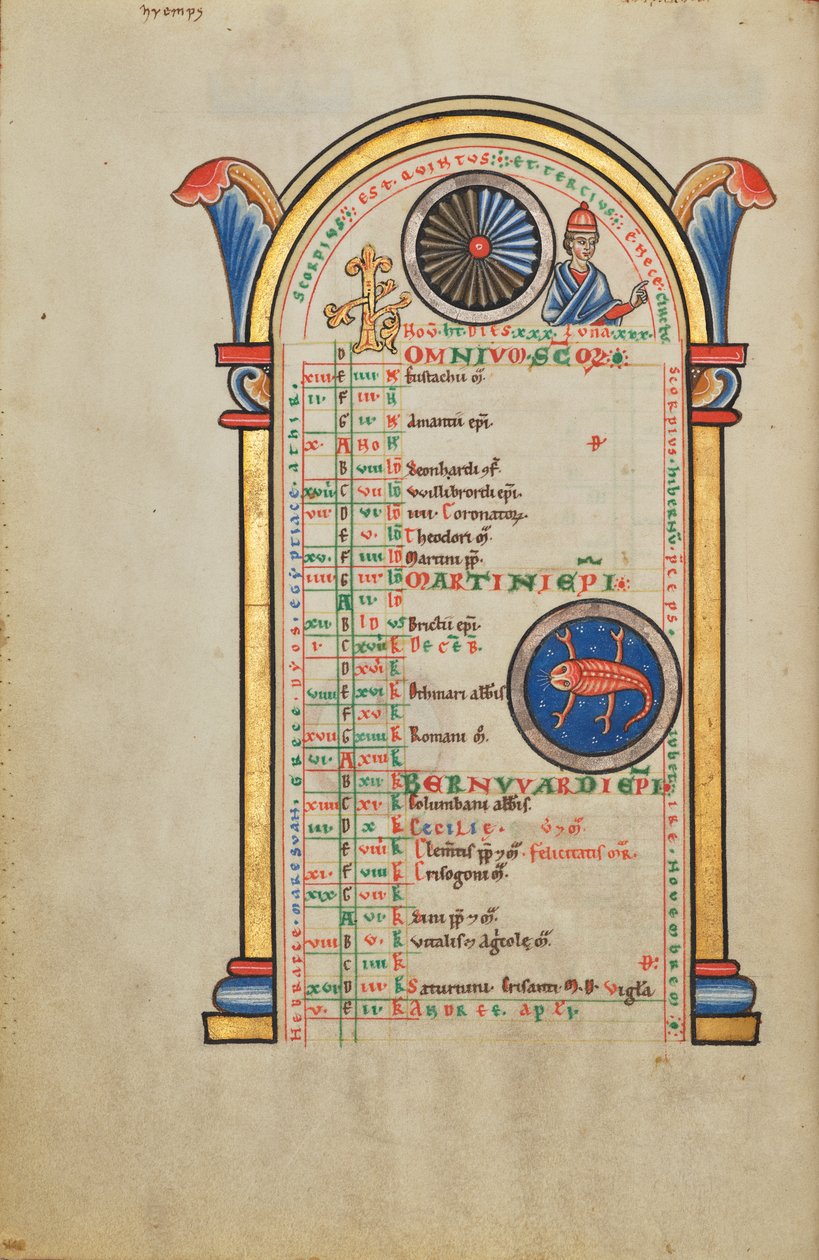 hyemps
SCORPIVS EST QVINTVS ET TERCIVS Ē NECE CINCTVS
KL
Nov̄ ht̄ Dies xxx Luna xxx
D OMNIVM SCOꝜ
xiii E iiii N Eustachii m̄
ii F iii N
G ii N Amantii ep̄i
x A NO N D
B viii ID Leonhardi ɔf̄
xviii C vii ID Willibrordi ep̄i
vii D vi ID iiii Coronatoꝝ
E v ID Theodori m̄
xv F iiii ID Martini pp̄
iiii G iii ID MARTINI EP̄I
A ii ID
xii B ID VS Brictii ep̄i
i C xviii K DECĒB
D xvii K
viiii E xvi K Othmari abb̄is
F xv K
xvii G xiiii K Romani m̄
vi A xiii K
B xii K BERNVVARDI EP̄I
xiiii C xi K Columbani abb̄is
iii D x K CECILIE v̄ ⁊ m̄
E viiii K Clem̄tis pp̄ ⁊ m̄ Felicitatis m̄R
xi F viii K Crisogoni m̄
xix G vii K
A vi K Lini pp̄ ⁊ m̄
viii B v K Vitalis ⁊ Agicolę m̄
C iiii K D
xvi D iii K Saturnini Crisanti M D Vigl̄a
v E ii K ANDREE apl̄i
HEBRAICE MARESVAN GRECE DYOS EGYPTIACE ATHIR
SCORPIVS HIBERNV̄ P̄CEPS IVBET IRE NOVEMBREM